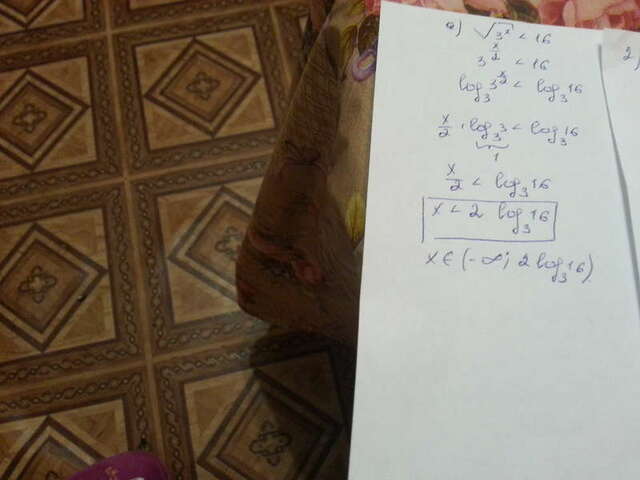 а) √3^x < 16
3^(x/2) < 16
log_3 3^(x/2) < log_3 16
x/2 · log_3 3 < log_3 16
1
x/2 < log_3 16
x < 2 log_3 16
x ∈ (-∞; 2 log_3 16)
2)